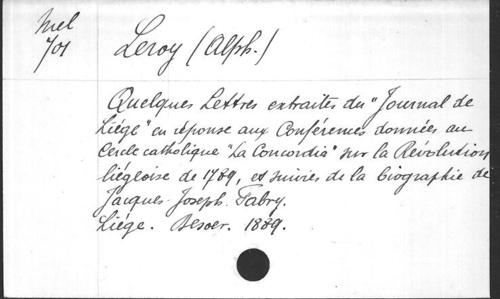 Mel
701
Leroy (Alph.)
Quelques Lettres extraites du "Journal de
Liége" en réponse aux Conférences données au
Cercle catholique "La Concordia" sur la Révolution
liégeoise de 1789, et suivies de la biographie de
Jacques-Joseph Fabry.
Liége. Desoer. 1889.